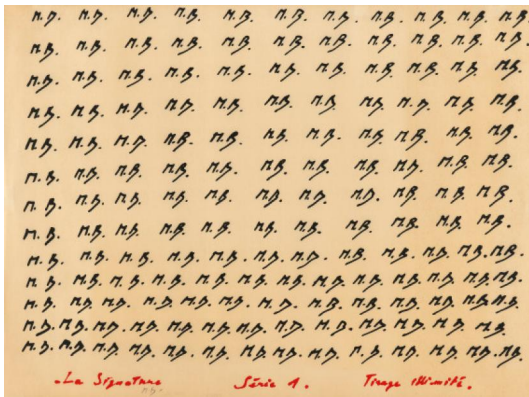 M.B. M.B. M.B. M.B. M.B. M.B. M.B. M.B. M.B. M.B. M.B.
M.B. M.B. M.B. M.B. M.B. M.B. M.B. M.B. M.B. M.B. M.B.
M.B. M.B. M.B. M.B. M.B. M.B. M.B. M.B. M.B. M.B. M.B.
M.B. M.B. M.B. M.B. M.B. M.B. M.B. M.B. M.B. M.B. M.B.
M.B. M.B. M.B. M.B. M.B. M.B. M.B. M.B. M.B. M.B. M.B.
M.B. M.B. M.B. M.B. M.B. M.B. M.B. M.B. M.B. M.B. M.B.
M.B. M.B. M.B. M.B. M.B. M.B. M.B. M.B. M.B. M.B. M.B.
M.B. M.B. M.B. M.B. M.B. M.B. M.B. M.B. M.B. M.B. M.B.
M.B. M.B. M.B. M.B. M.B. M.B. M.B. M.B. M.B. M.B. M.B. M.B. M.B.
M.B. M.B. M.B. M.B. M.B. M.B. M.B. M.B. M.B. M.B. M.B. M.B. M.B.
M.B. M.B. M.B. M.B. M.B. M.B. M.B. M.B. M.B. M.B. M.B. M.B. M.B.
M.B. M.B. M.B. M.B. M.B. M.B. M.B. M.B. M.B. M.B. M.B. M.B. M.B.
M.B. M.B. M.B. M.B. M.B. M.B. M.B. M.B. M.B. M.B. M.B. M.B. M.B. M.B.
La Signature Série 1. Tirage illimité.
M.B.